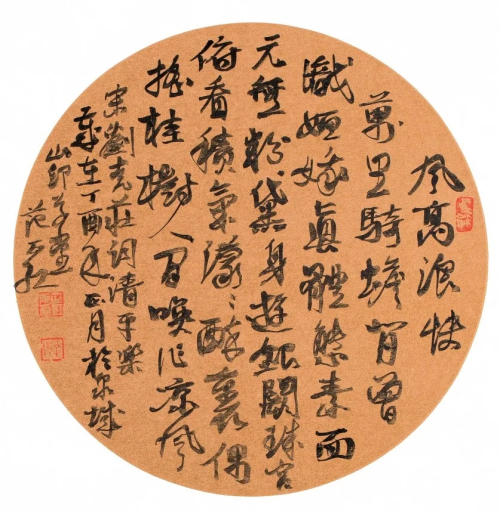 風高浪快
萬里騎蟾背曾
識姮娥真體態素面
元無粉黛身遊銀闕珠宮
俯看積氣濛〻醉裏偶
搖桂樹人間喚作凉風
宋劉克莊詞清平樂
歲在丁酉年正月於泉城
山印草堂
范